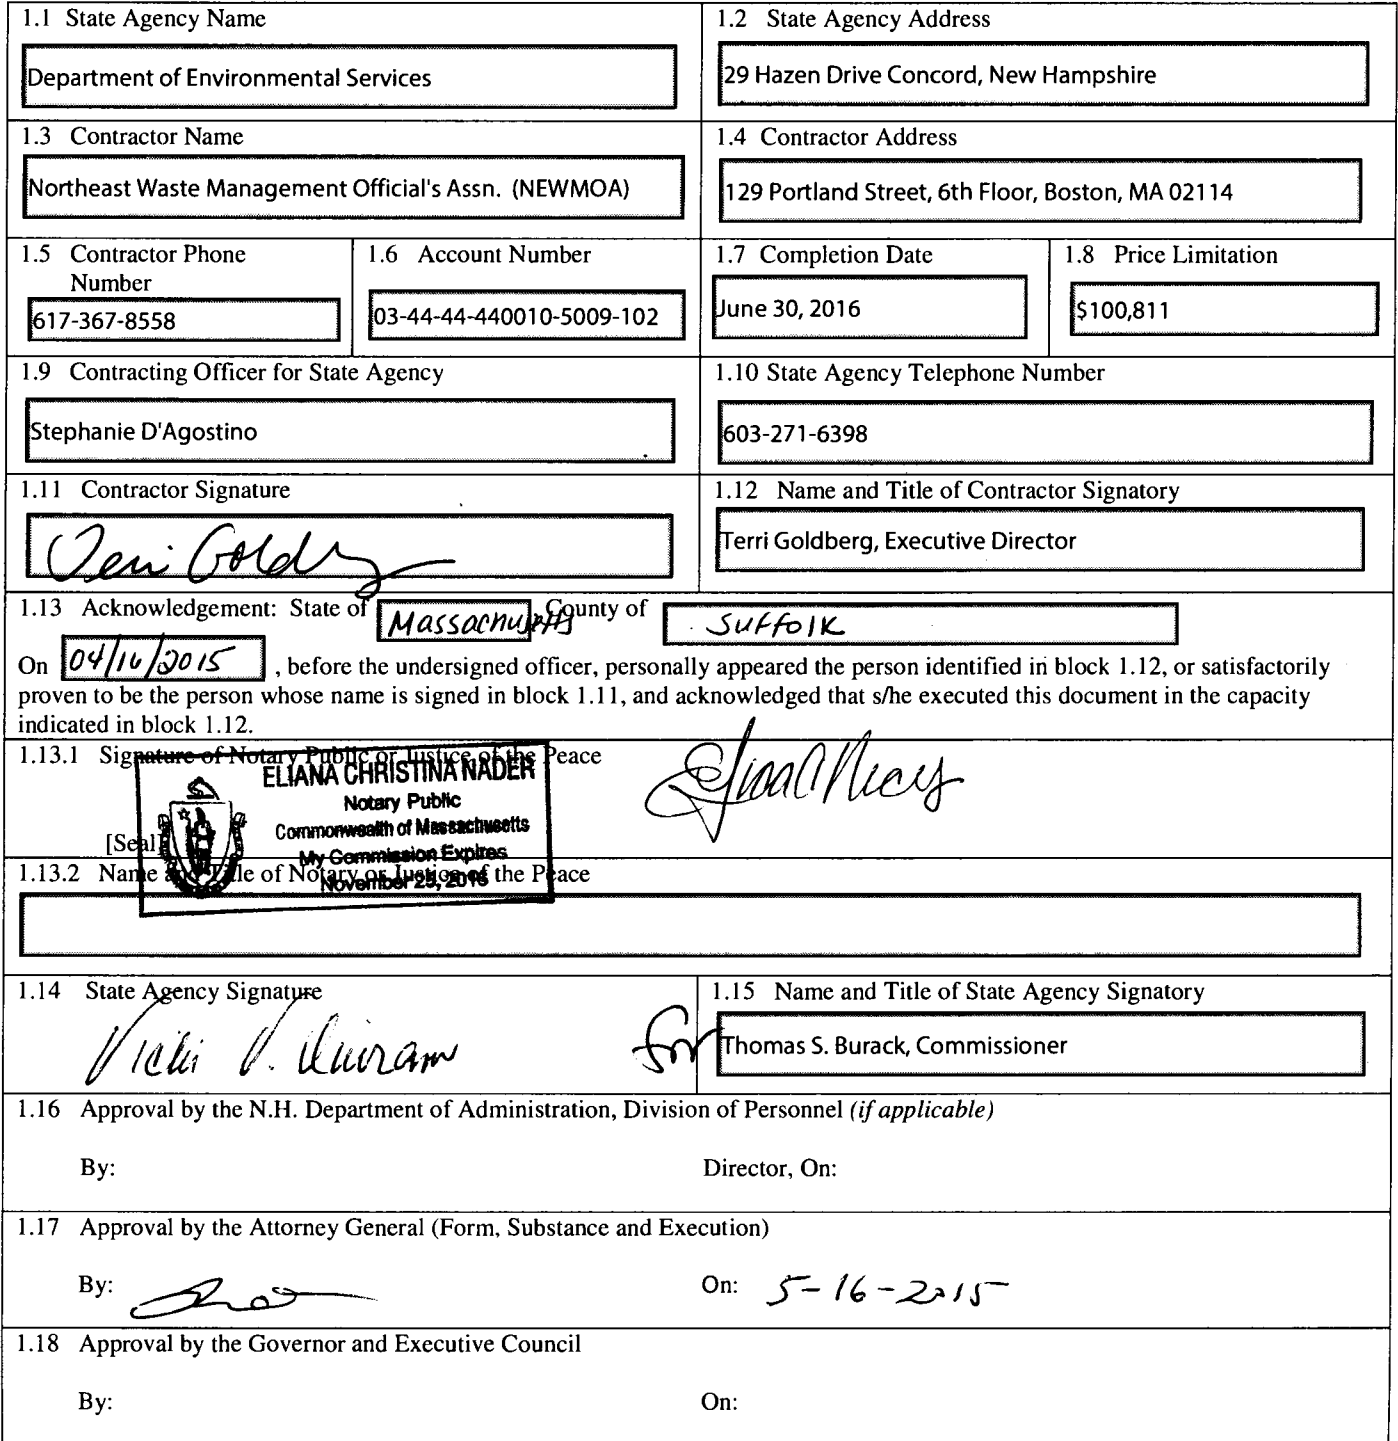 1.1 State Agency Name
Department of Environmental Services
1.2 State Agency Address
29 Hazen Drive Concord, New Hampshire
1.3 Contractor Name
Northeast Waste Management Official's Assn. (NEWMOA)
1.4 Contractor Address
129 Portland Street, 6th Floor, Boston, MA 02114
1.5 Contractor Phone
Number
617-367-8558
1.6 Account Number
03-44-44-440010-5009-102
1.7 Completion Date
June 30, 2016
1.8 Price Limitation
$100,811
1.9 Contracting Officer for State Agency
Stephanie D'Agostino
1.10 State Agency Telephone Number
603-271-6398
1.11 Contractor Signature
1.12 Name and Title of Contractor Signatory
Terri Goldberg, Executive Director
1.13 Acknowledgement: State of Massachusetts County of Suffolk
On 04/16/2015 , before the undersigned officer, personally appeared the person identified in block 1.12, or satisfactorily
proven to be the person whose name is signed in block 1.11, and acknowledged that s/he executed this document in the capacity
indicated in block 1.12.
1.13.1 Signature of Notary Public or Justice of the Peace
ELIANA CHRISTINA NADER
Notary Public
Commonwealth of Massachusetts
My Commission Expires
November 25, 2016
[Seal]
1.13.2 Name and Title of Notary or Justice of the Peace
1.14 State Agency Signature
for
1.15 Name and Title of State Agency Signatory
Thomas S. Burack, Commissioner
1.16 Approval by the N.H. Department of Administration, Division of Personnel (if applicable)
By:
Director, On:
1.17 Approval by the Attorney General (Form, Substance and Execution)
By:
On: 5-16-2015
1.18 Approval by the Governor and Executive Council
By:
On: